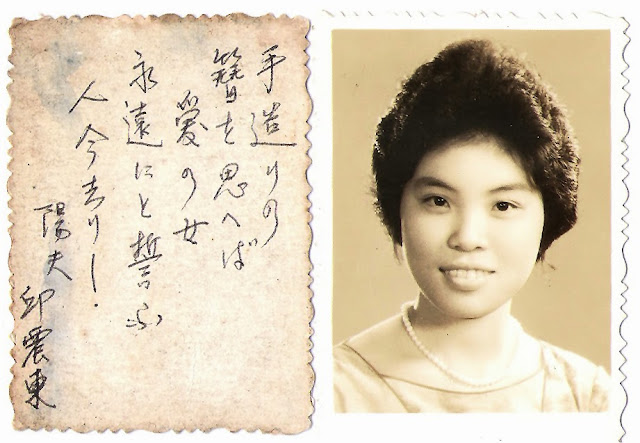 手造りの
簪を思へば
愛の女
永遠にと誓ふ
人今去りし!
陽夫
邱震東